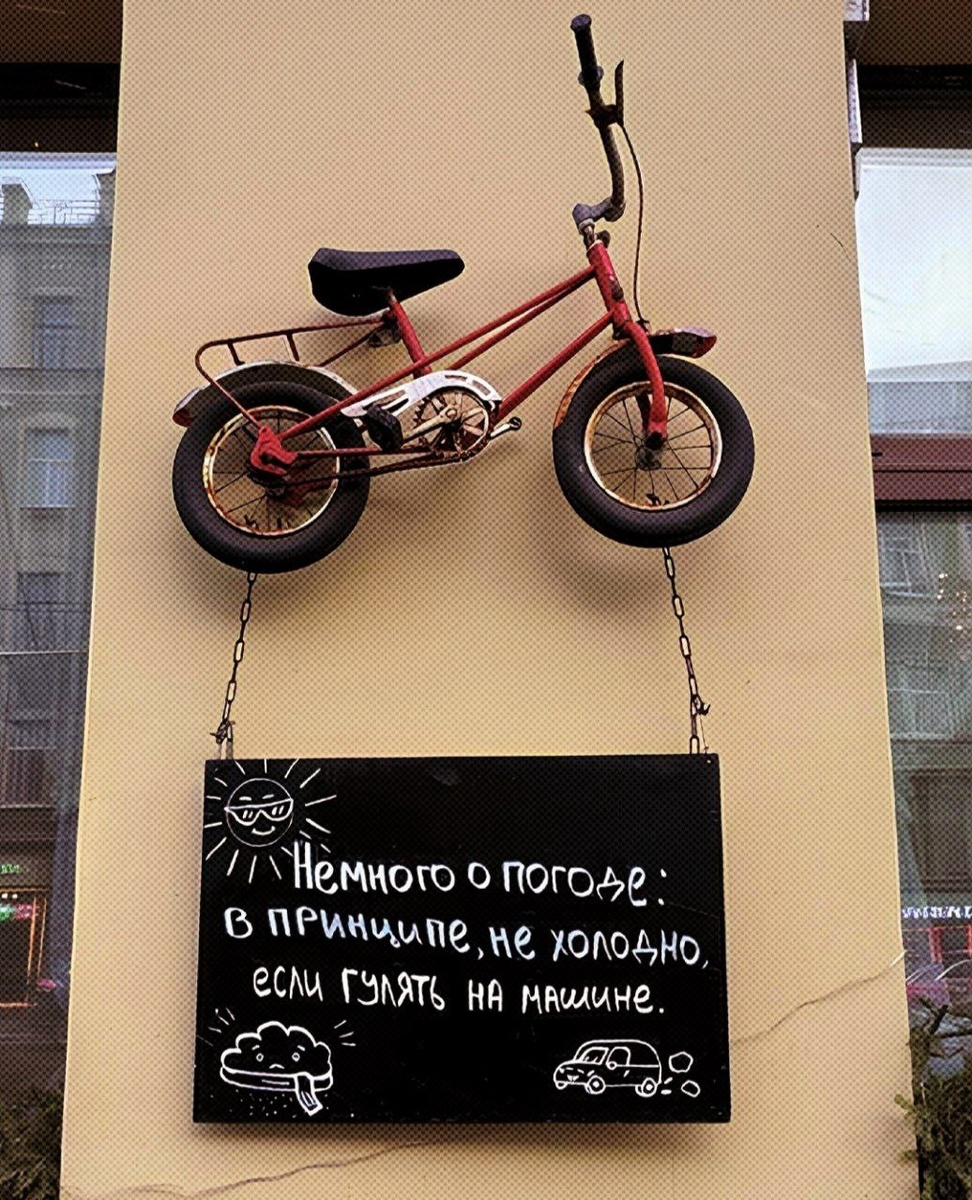 Немного о погоде:
в принципе, не холодно,
если гулять на машине.